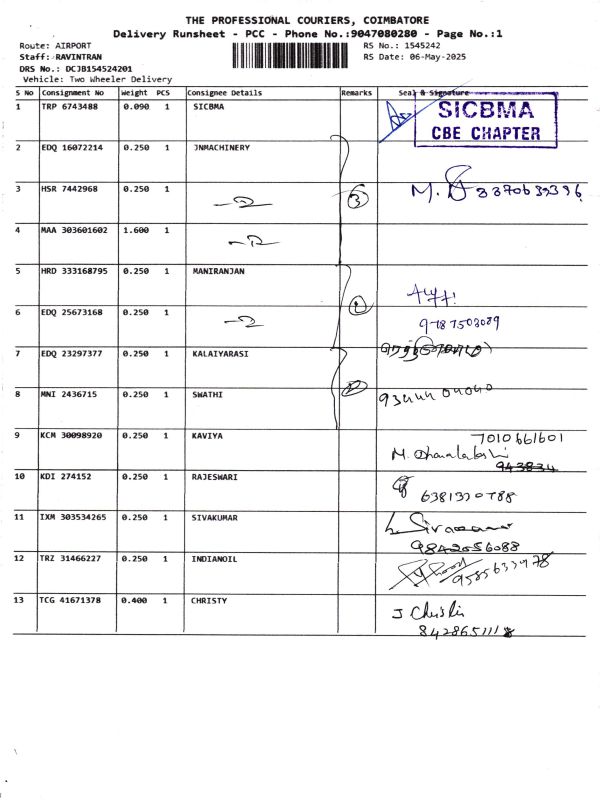 THE PROFESSIONAL COURIERS, COIMBATORE
Delivery Runsheet - PCC - Phone No.:9047080280 - Page No.:1
Route: AIRPORT
RS No.: 1545242
Staff: RAVINTRAN
RS Date: 06-May-2025
DRS No.: DCJB154524201
Vehicle: Two Wheeler Delivery
S No Consignment No Weight PCS Consignee Details Remarks Seal & Signature
1 TRP 6743488 0.090 1 SICBMA
SICBMA
CBE CHAPTER
2 EDQ 16072214 0.250 1 JNMACHINERY
3 HSR 7442968 0.250 1 3 M.
4 MAA 303601602 1.600 1
5 HRD 333168795 0.250 1 MANIRANJAN
6 EDQ 25673168 0.250 1 9787503089
7 EDQ 23297377 0.250 1 KALAIYARASI
8 MNI 2436715 0.250 1 SWATHI 9344404040
9 KCM 30098920 0.250 1 KAVIYA 7010661601
M. Dhanalakshmi
943834
10 KDI 274152 0.250 1 RAJESWARI
6381330788
11 IXM 303534265 0.250 1 SIVAKUMAR
9842056088
12 TRZ 31466227 0.250 1 INDIANOIL
9585633978
13 TCG 41671378 0.400 1 CHRISTY J Christy
8428651118